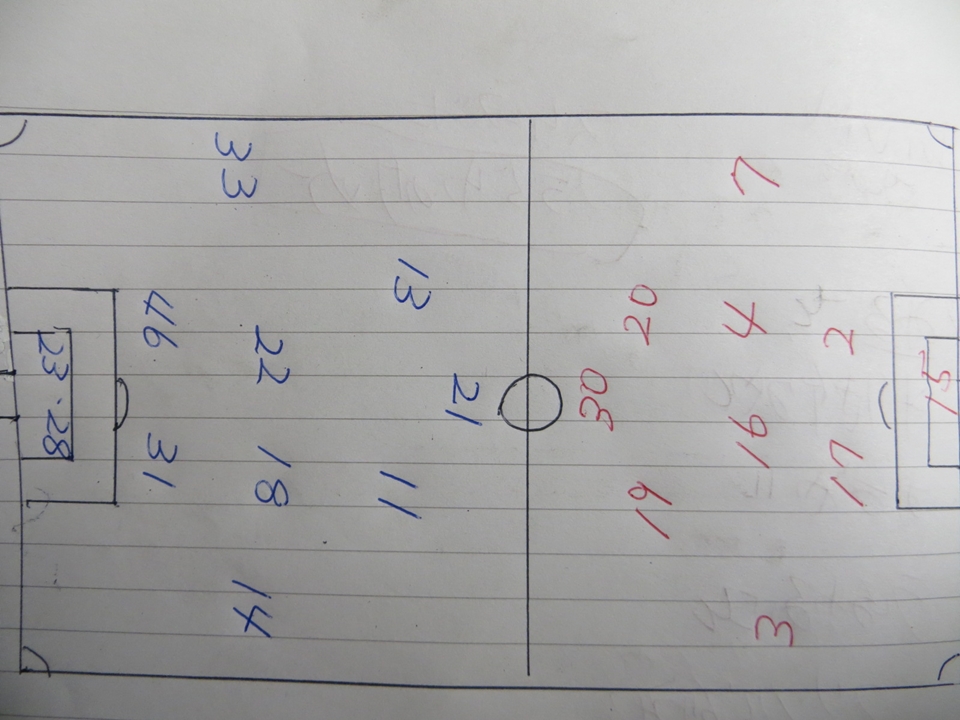 33
13
46
22
21
23 · 28
31
18
11
14
7
20
4
2
30
15
16
17
19
3